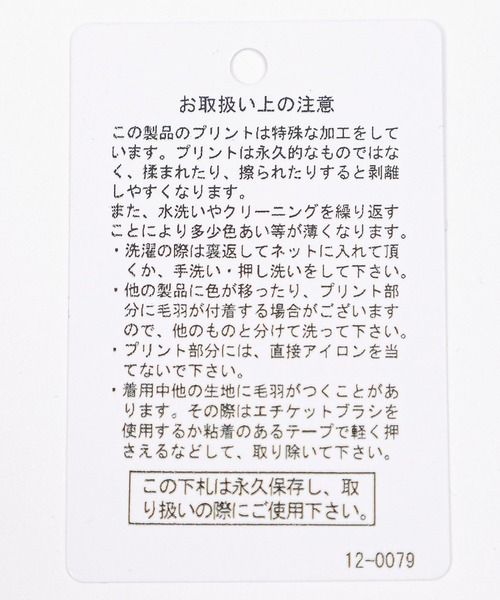 お取扱い上の注意
この製品のプリントは特殊な加工をして
います。プリントは永久的なものではな
く、揉まれたり、擦られたりすると剥離
しやすくなります。
また、水洗いやクリーニングを繰り返す
ことにより多少色あい等が薄くなります。
・洗濯の際は裏返してネットに入れて頂
くか、手洗い・押し洗いをして下さい。
・他の製品に色が移ったり、プリント部
分に毛羽が付着する場合がございます
ので、他のものと分けて洗って下さい。
・プリント部分には、直接アイロンを当
てないで下さい。
・着用中他の生地に毛羽がつくことがあ
ります。その際はエチケットブラシを
使用するか粘着のあるテープで軽く押
さえるなどして、取り除いて下さい。
この下札は永久保存し、取
り扱いの際にご使用下さい。
12-0079